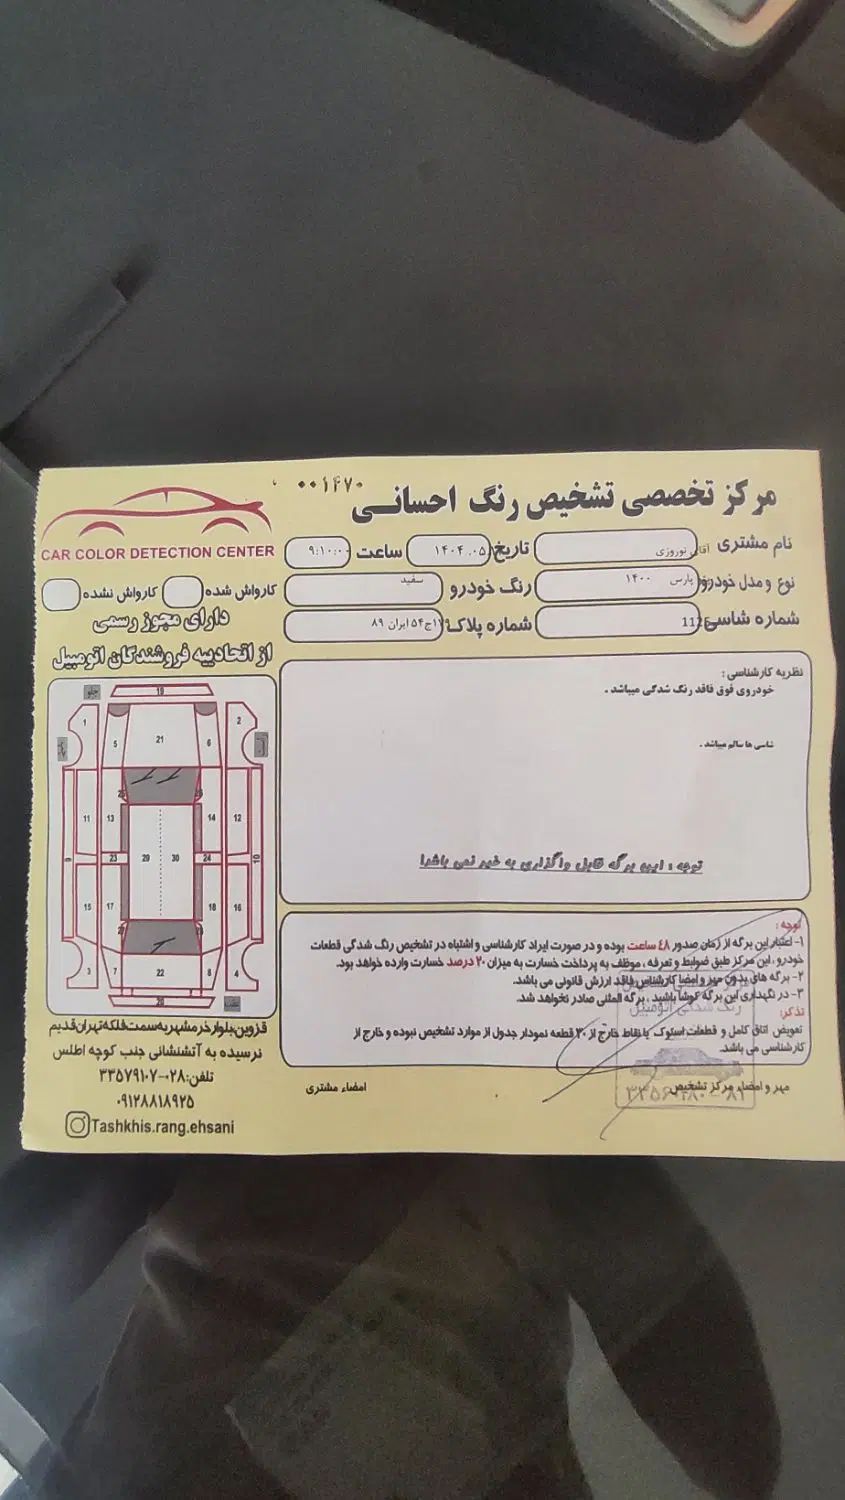 مرکز تخصصی تشخیص رنگ احسانی
۰۰۱۴۷۰
CAR COLOR DETECTION CENTER
نام مشتری آقای نوروزی
تاریخ ۱۴۰۴.۰۵
ساعت ۹:۱۰:۰۰
نوع و مدل خودرو پارس ۱۴۰۰
رنگ خودرو سفید
کارواش شده
کارواش نشده
شماره شاسی
شماره پلاک ۱۷ج۵۴ ایران ۸۹
دارای مجوز رسمی
از اتحادیه فروشندگان اتومبیل
نظریه کارشناسی :
خودروی فوق فاقد رنگ شدگی میباشد .
شاسی ها سالم میباشد .
توجه : این برگه قابل واگذاری به غیر نمی باشد!
جلو
19
1 5 21 6 2
11 13 14 12
9 23 29 30 24 10
15 17 18 16
3 7 22 8 4
20
توجه :
۱- اعتبار این برگه از زمان صدور ۴۸ ساعت بوده و در صورت ایراد کارشناسی و اشتباه در تشخیص رنگ شدگی قطعات
خودرو، این مرکز طبق ضوابط و تعرفه، موظف به پرداخت خسارت به میزان ۲۰ درصد خسارت وارده خواهد بود.
۲- برگه های بدون مهر و امضا کارشناس فاقد ارزش قانونی می باشد.
۳- در نگهداری این برگه کوشا باشید ، برگه المثنی صادر نخواهد شد.
تذکر:
تعویض اتاق کامل و قطعات استوک یا نقاط خارج از ۳۰ قطعه نمودار جدول از موارد تشخیص نبوده و خارج از
کارشناسی می باشد.
مهر و امضاء مرکز تشخیص
امضاء مشتری
رنگ شدگی اتومبیل
قزوین بلوار خرمشهر به سمت فلکه تهران قدیم
نرسیده به آتشنشانی جنب کوچه اطلس
تلفن: ۰۲۸-۳۳۵۷۹۱۰۷
۰۹۱۲۸۸۱۸۹۲۵
Tashkhis.rang.ehsani